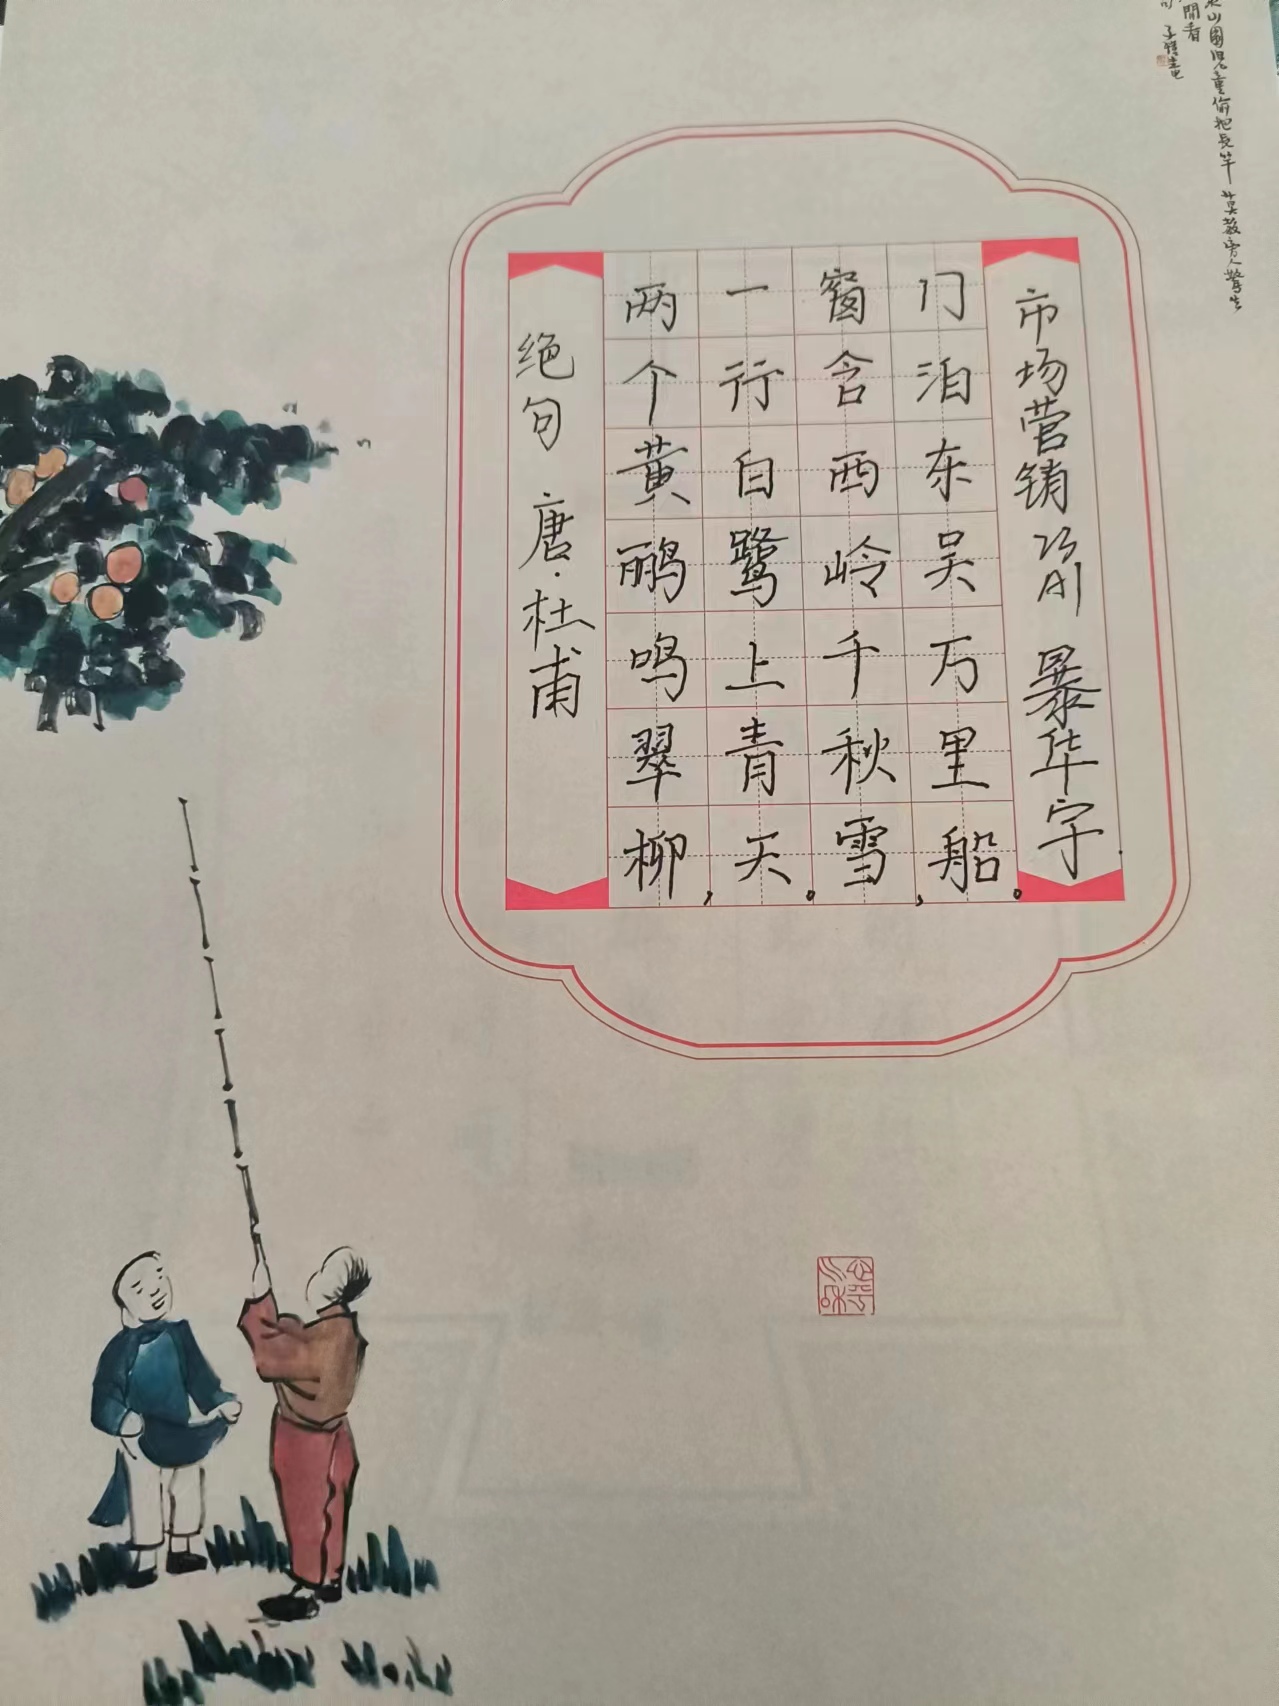 绝句 唐·杜甫
两个黄鹂鸣翠柳，
一行白鹭上青天。
窗含西岭千秋雪，
门泊东吴万里船。
市场营销 23 A1 暴华宇
山園兒童偷把長竿 莫教旁人驚去
閒看
子愷畫